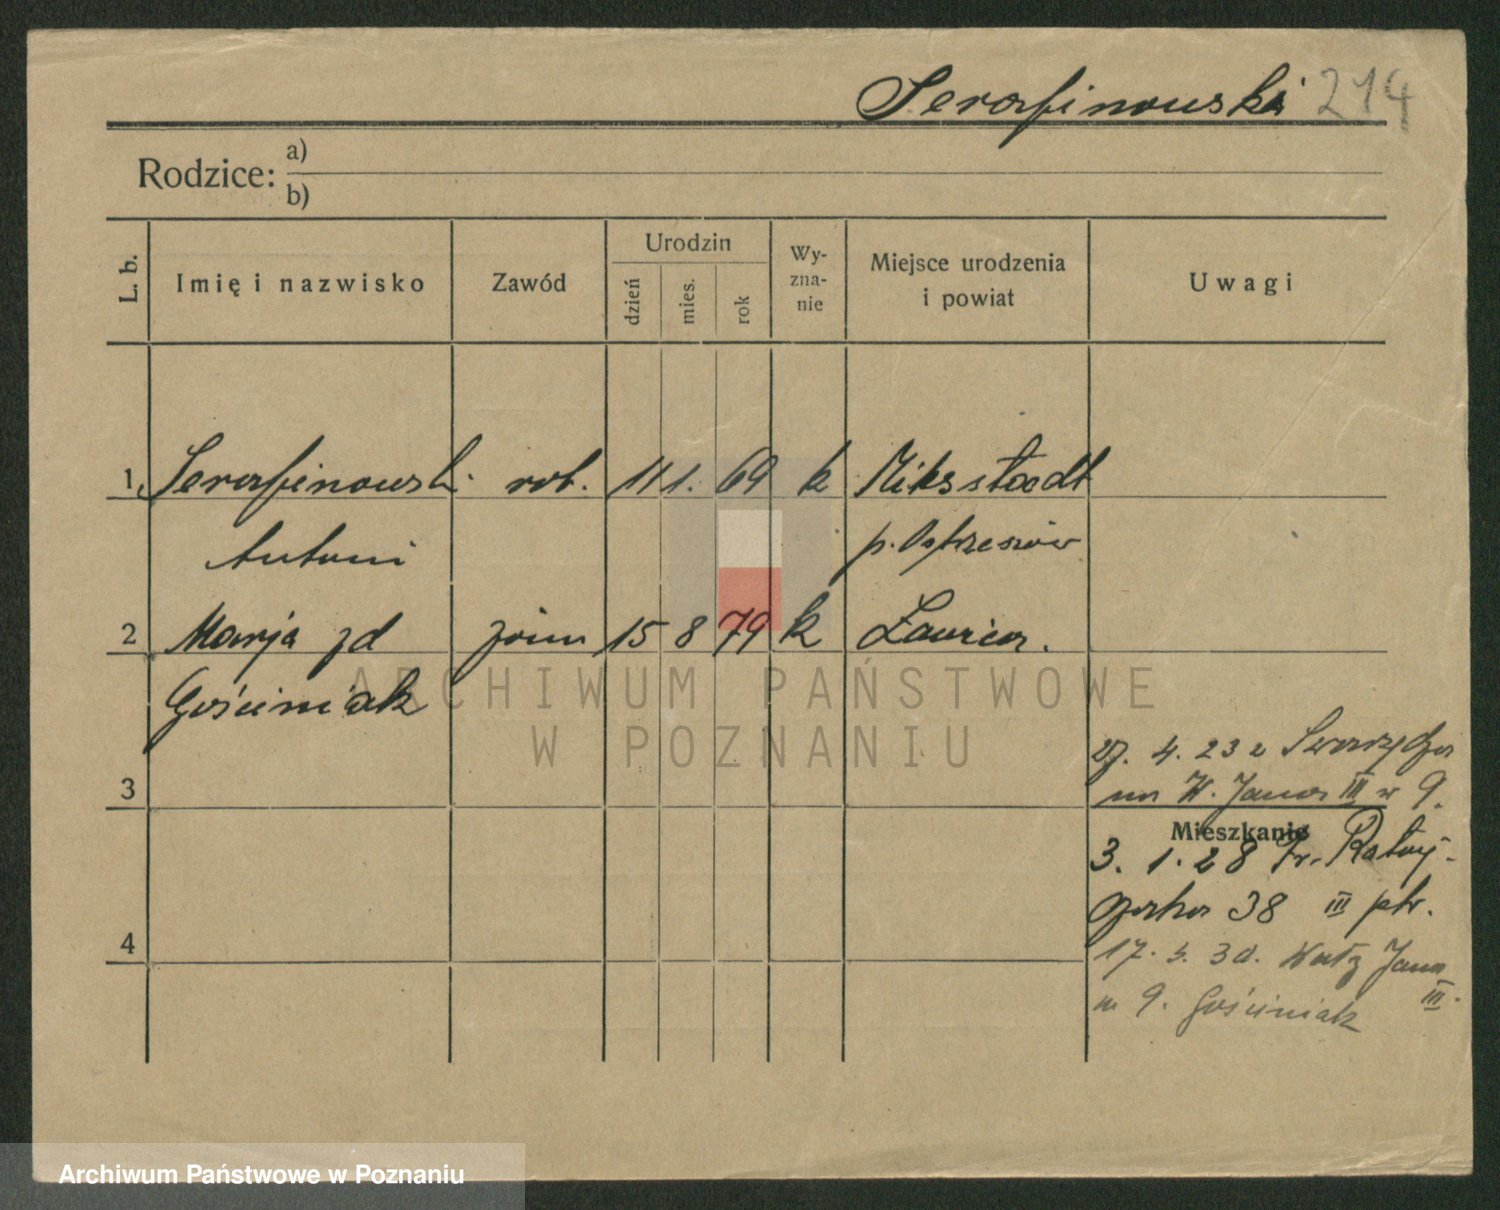 Serafinowski 214
Rodzice: a)
b)
L. b.
Imię i nazwisko
Zawód
Urodzin
dzień
mies.
rok
Wy-
zna-
nie
Miejsce urodzenia
i powiat
Uwagi
1. Serafinowski rob. 11 1. 69 k Miksstadt
Antoni p. Ostrzeszów
2 Marja zd 15 8 79 k
Gościniak
ARCHIWUM PAŃSTWOWE
W POZNANIU
27. 4. 23 z
3 na K. Jana III w 9.
Mieszkanie
3. 1. 28 Fr. Rataj-
czaka 38 III ptr.
4 17. 5. 30. Jana
III.
m 9. Gościniak
Archiwum Państwowe w Poznaniu